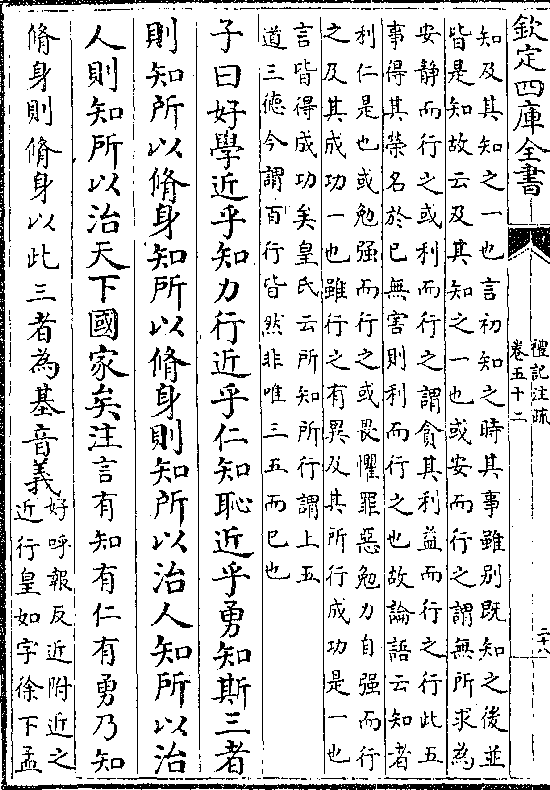 欽定四庫全書
禮記注疏
卷五十二
二十八
知及其知之一也言初知之時其事雖别既知之後並
皆是知故云及其知之一也或安而行之謂無所求為
安静而行之或利而行之謂貪其利益而行之行此五
事得其榮名於已無害則利而行之也故論語云知者
利仁是也或勉强而行之或畏懼罪惡勉力自强而行
之及其成功一也雖行之有異及其所行成功是一也
言皆得成功矣皇氏云所知所行謂上五
道三徳今謂百行皆然非唯三五而巳也
子曰好學近乎知力行近乎仁知恥近乎勇知斯三者
則知所以脩身知所以脩身則知所以治人知所以治
人則知所以治天下國家矣注言有知有仁有勇乃知
脩身則脩身以此三者為基音義好呼報反近附近之
近行皇如字徐下孟